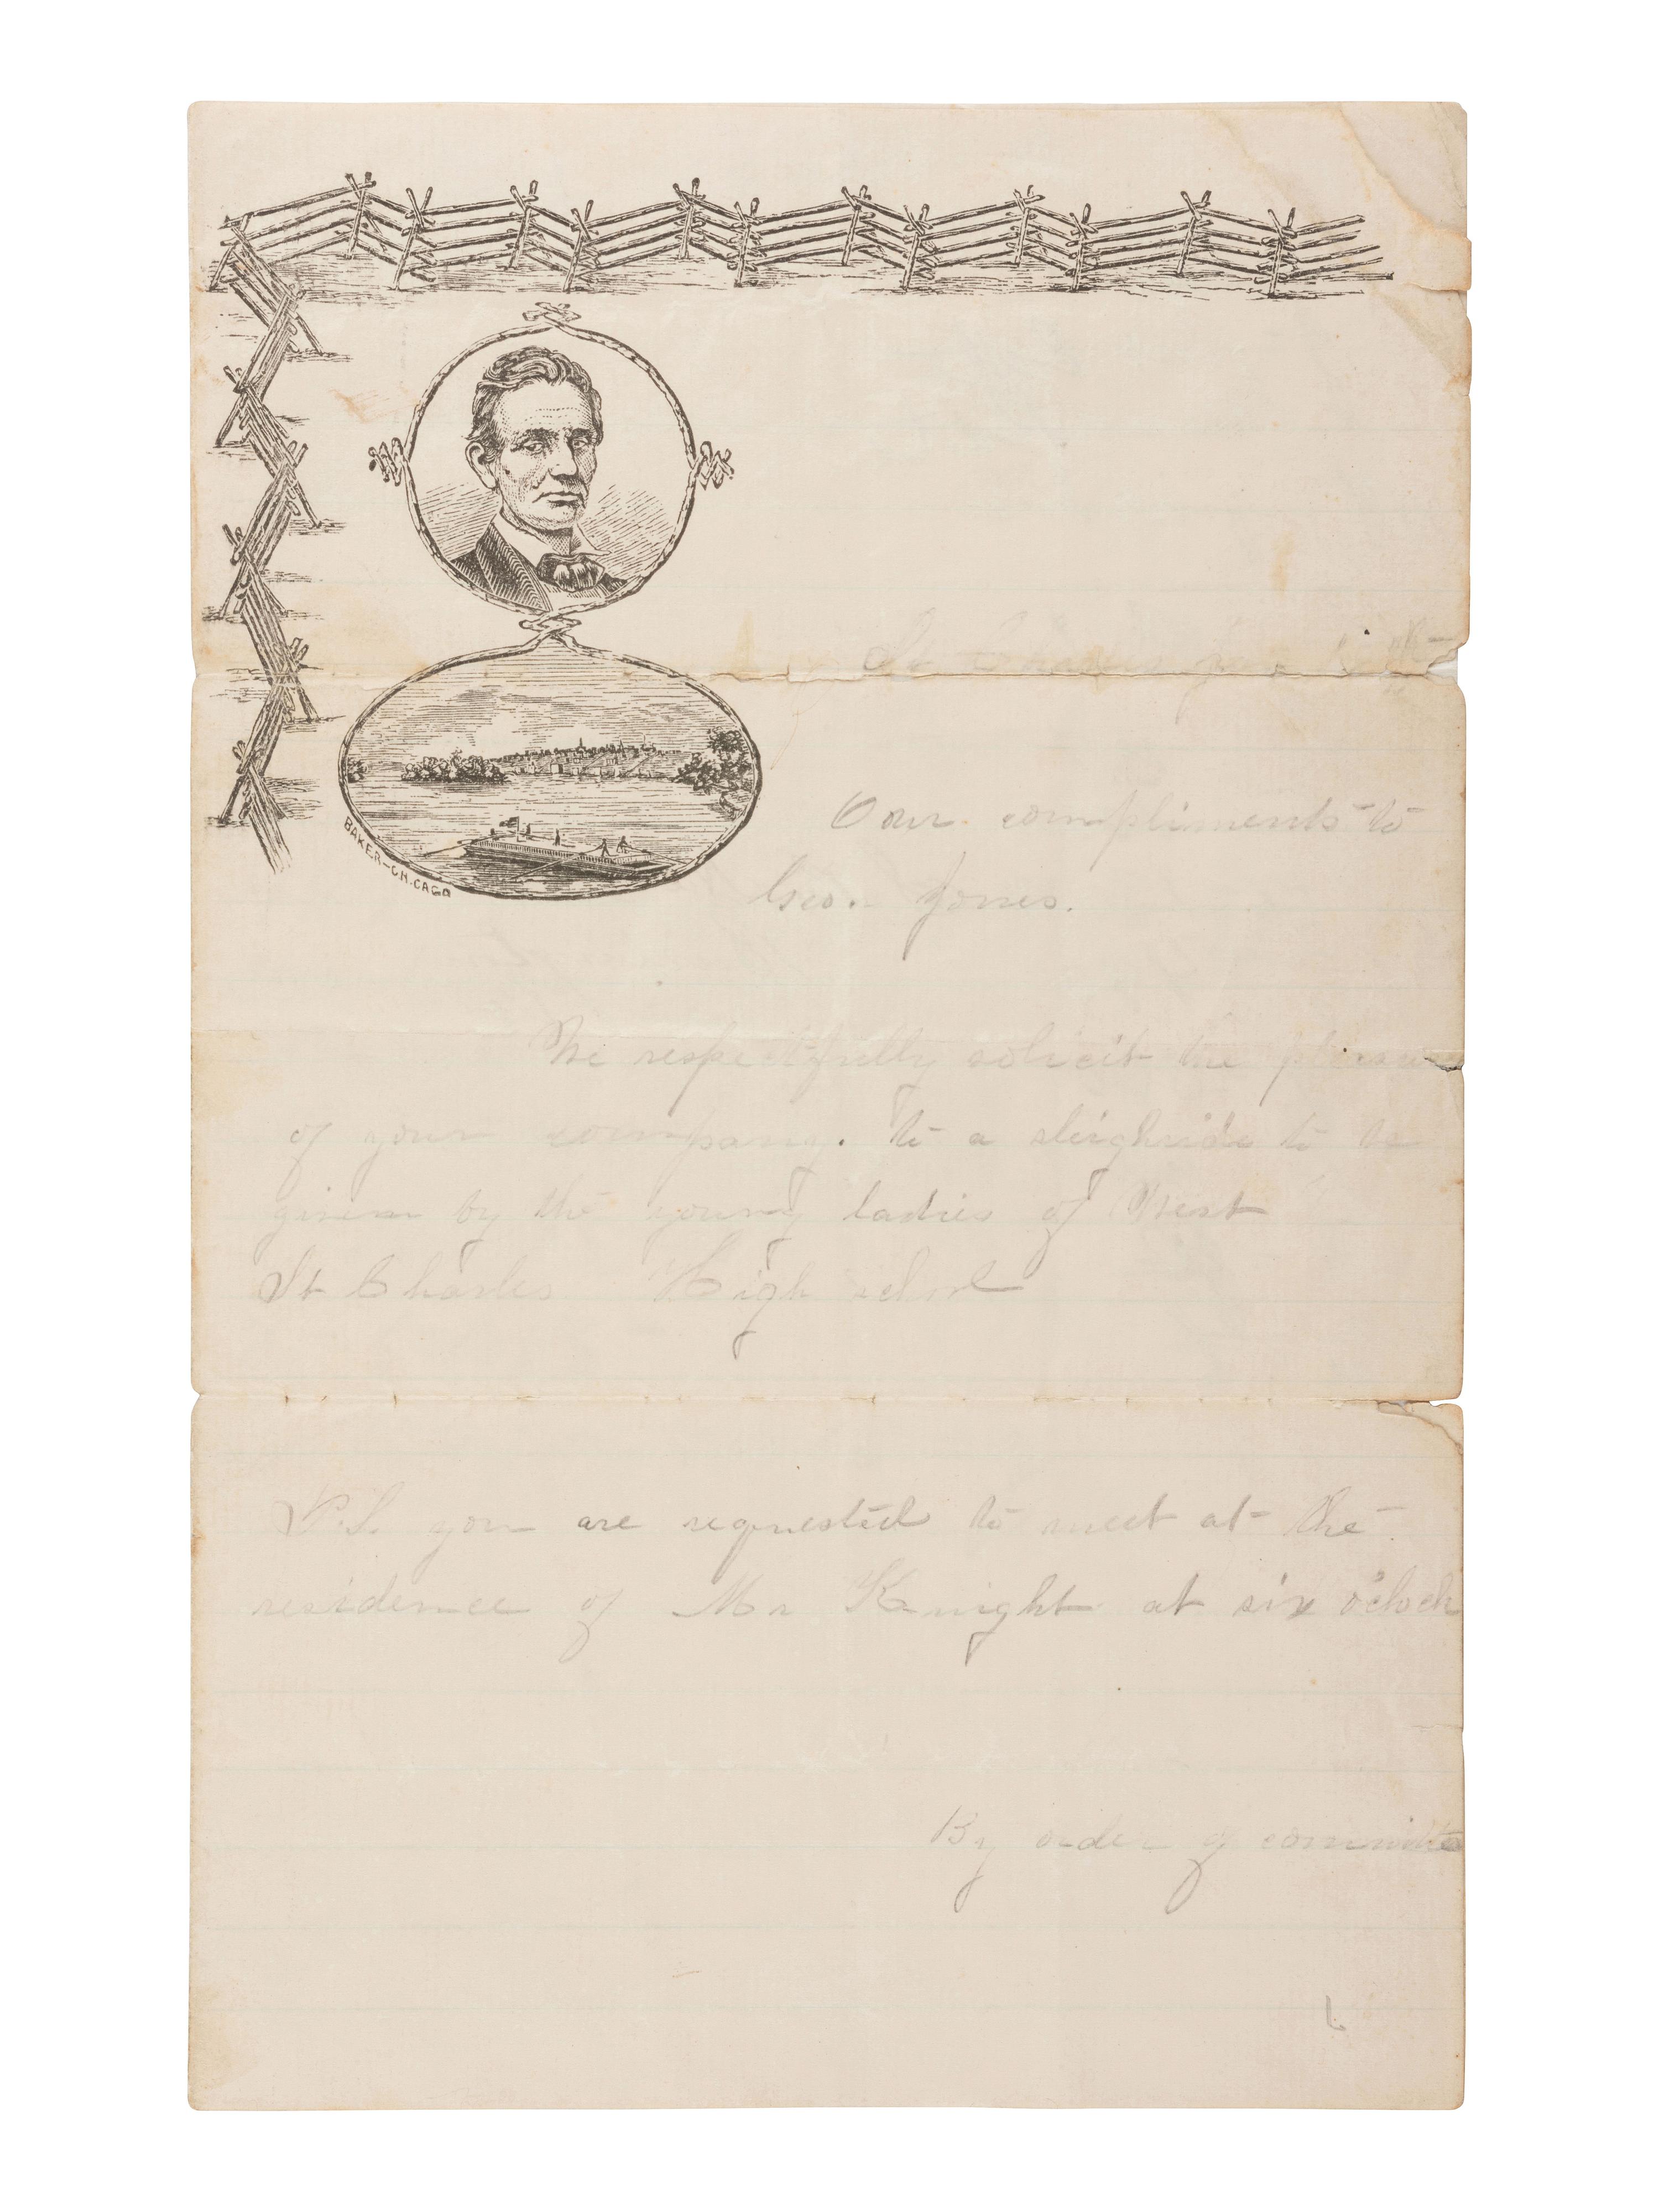 St Charles Jan
BAKER-CHICAGO
Our compliments to
Geo. Jones.
We respectfully solicit the pleasure
of your company. to a sleighride to be
given by the young ladies of West
St Charles High school
P.S. you are requested to meet at the
residence of Mr Knight at six o'clock
By order of committee